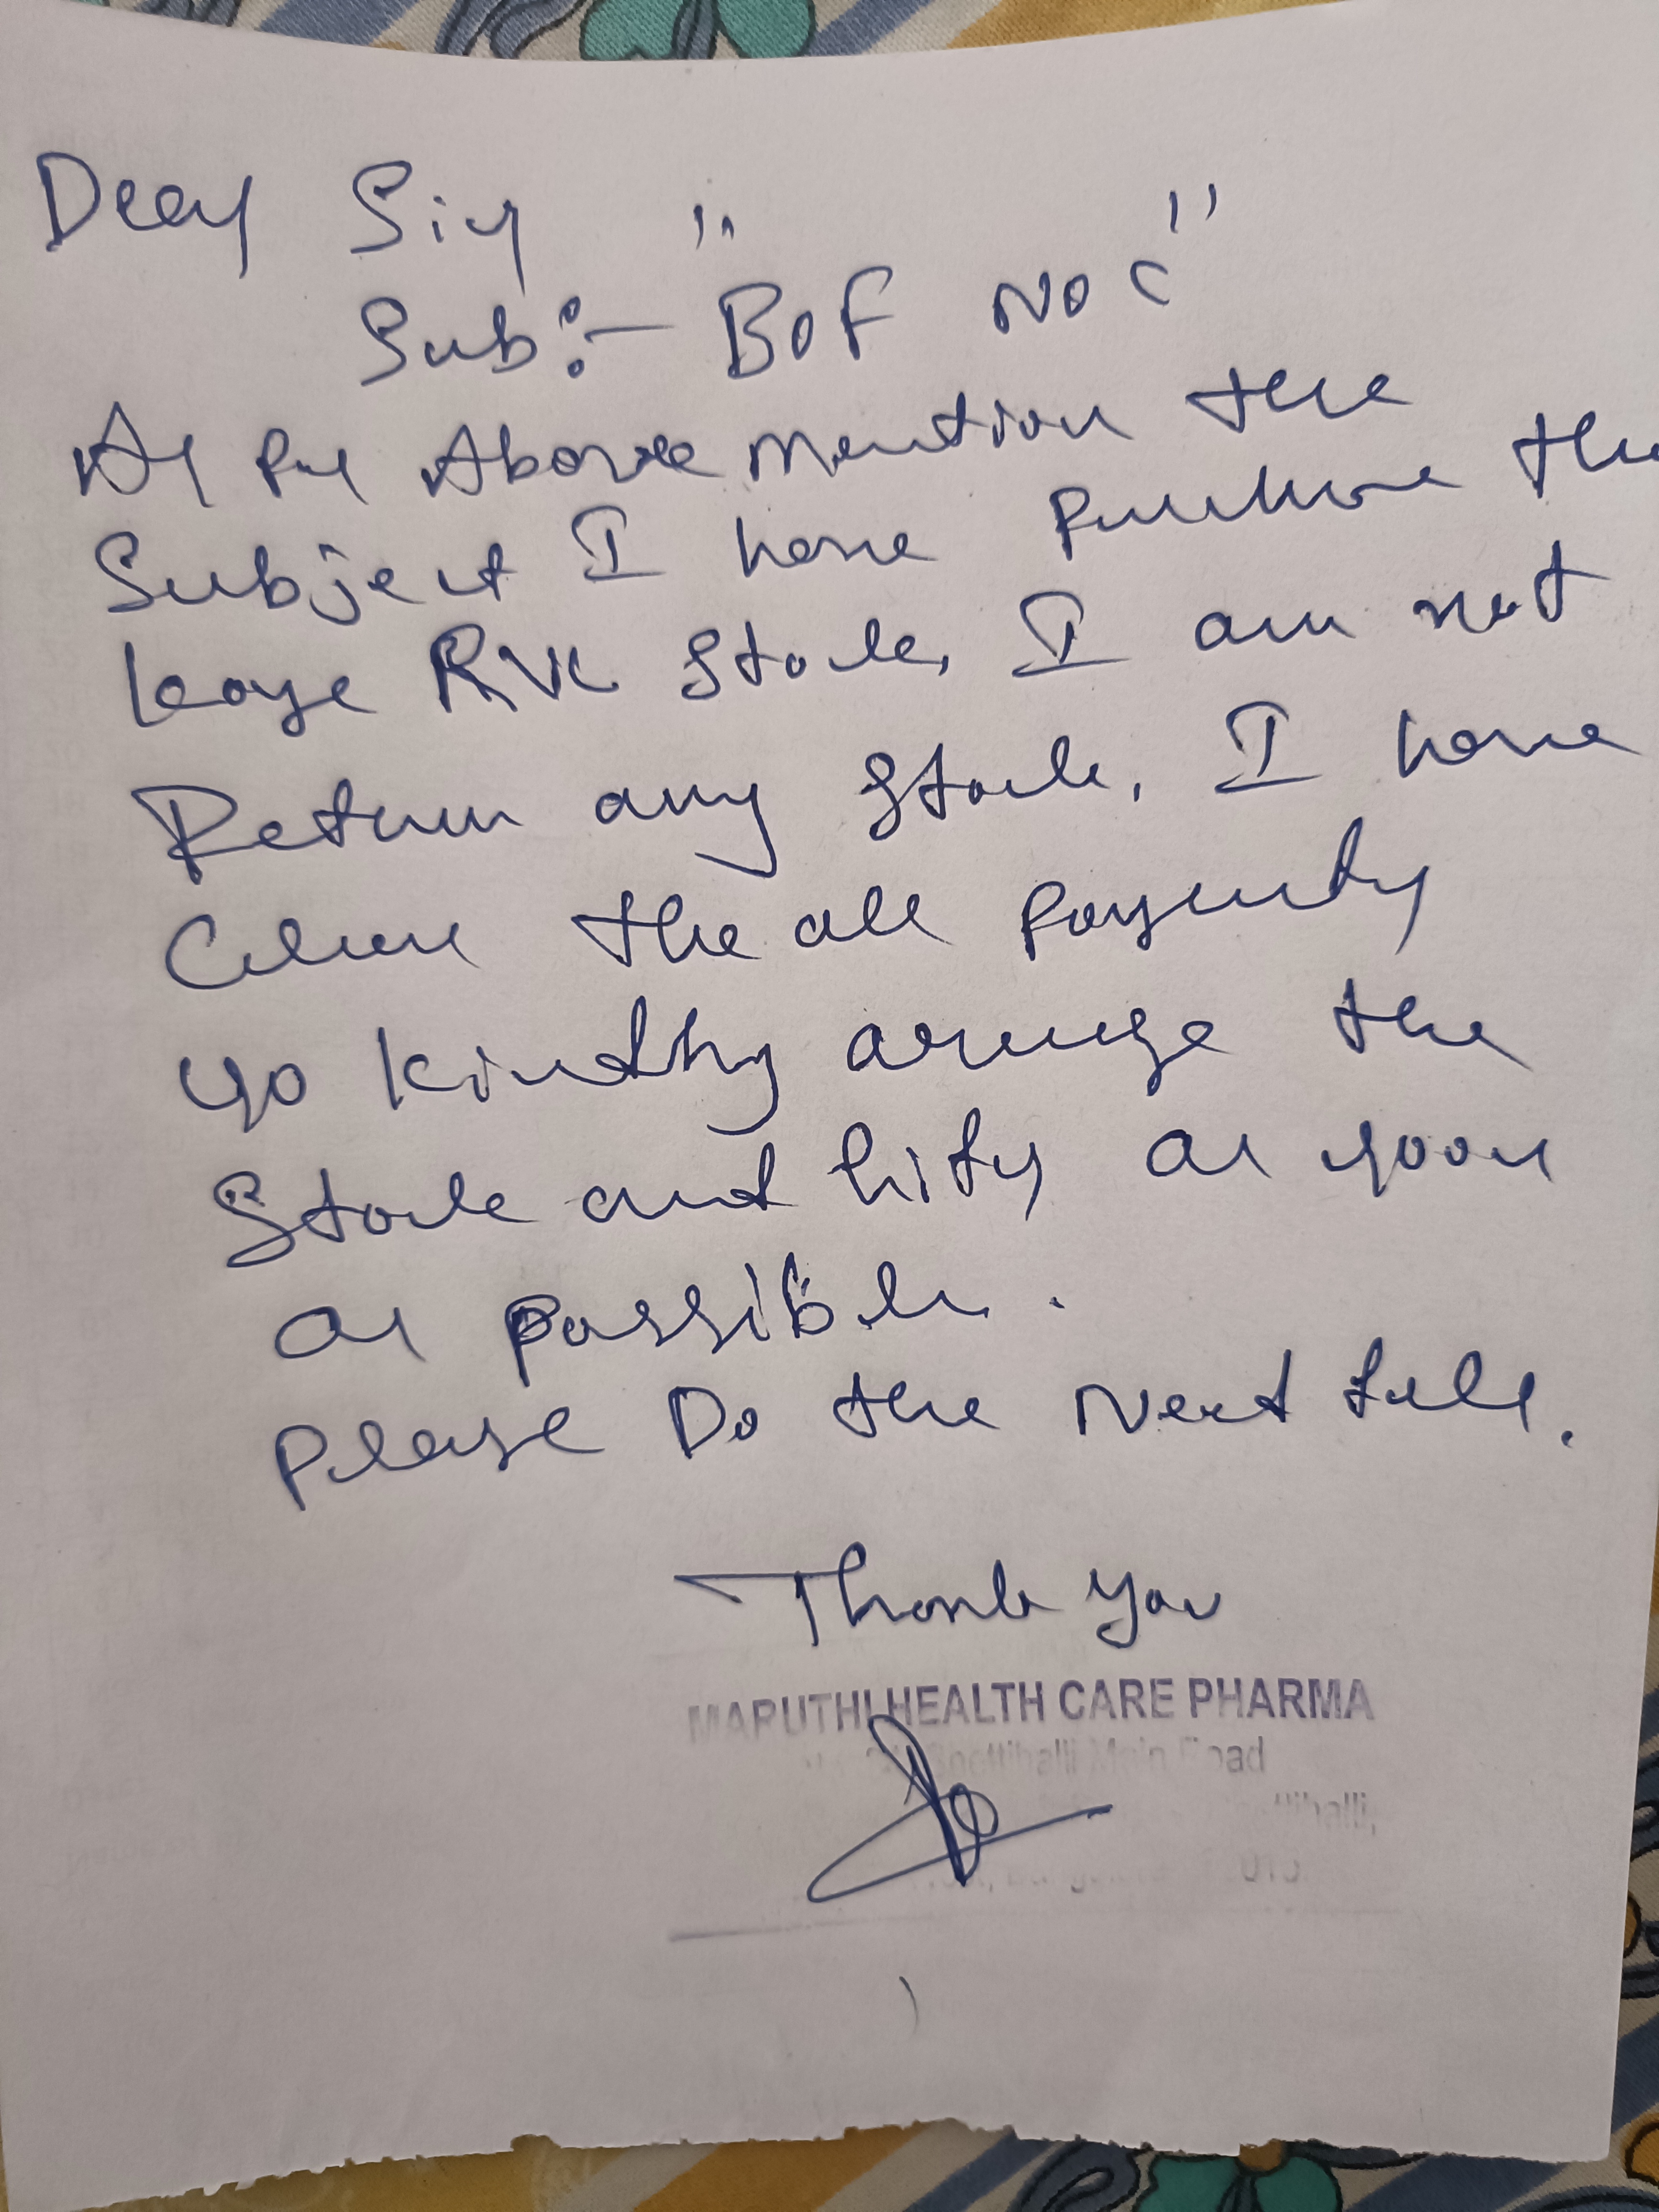 Dear Sir
Sub:- "BOF NOC"
As per Above mention the
Subject I have purchase the
large Stock, I am not
Return any Stock, I have
Clear the all payments
so kindly arrange the
Stock and as soon
as possible.
please Do the Next
Thank you
MARUTHI HEALTH CARE PHARMA
Shettihalli Main Road